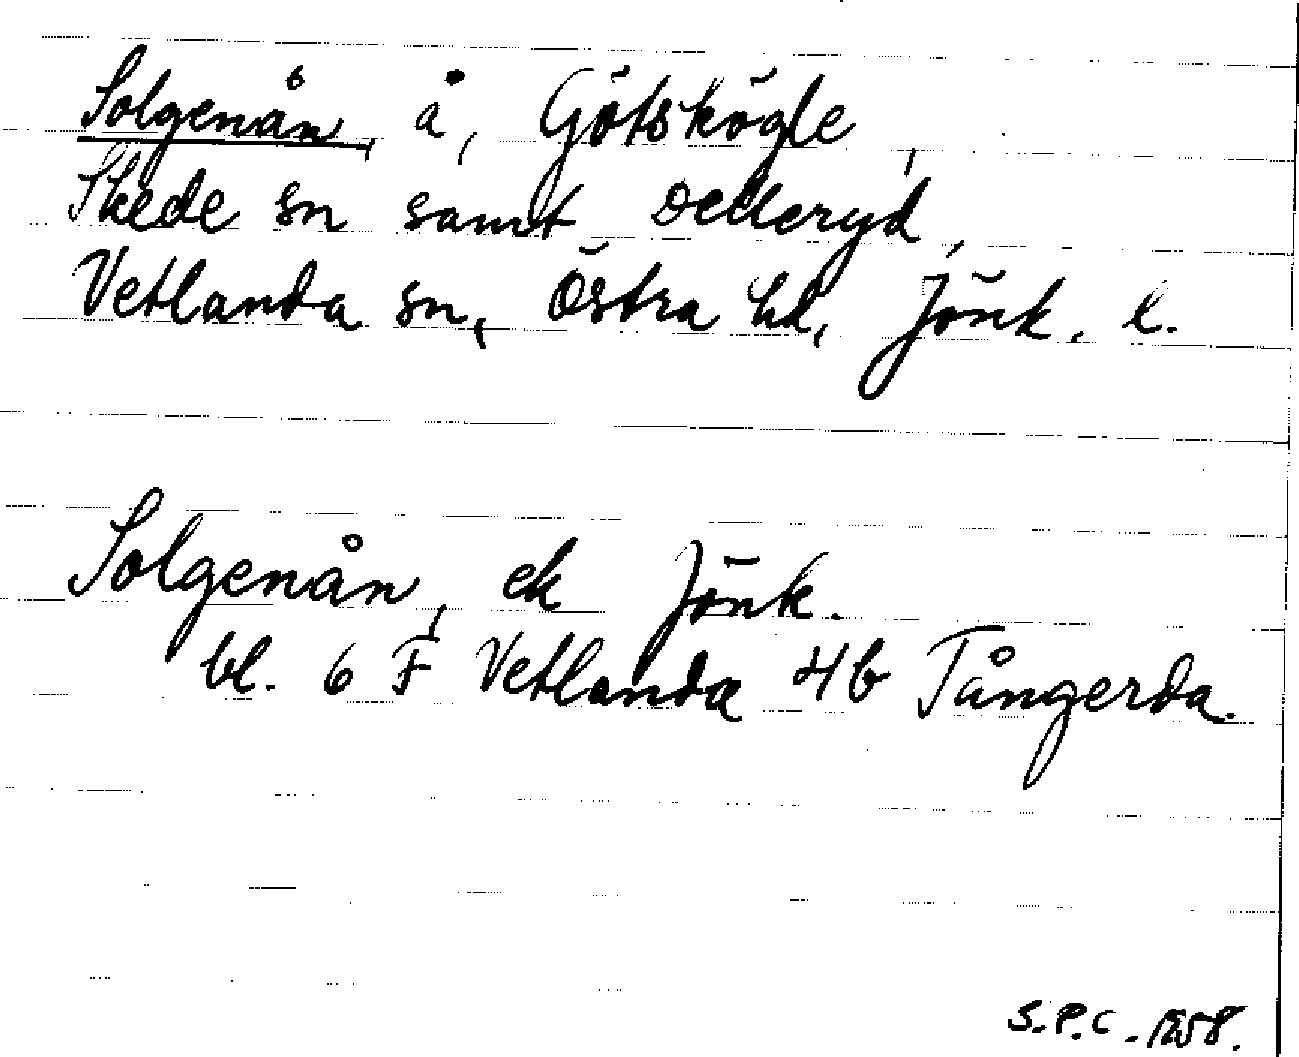 Solgenån, å, Götskögle,
Skede sn samt Øedleryd,
Vetlanda sn, Östra hd, Jönk. l.
Solgenån, ek Jönk.
bl. 6 F Vetlanda 4b Tångerda.
S.P.C. 1258.